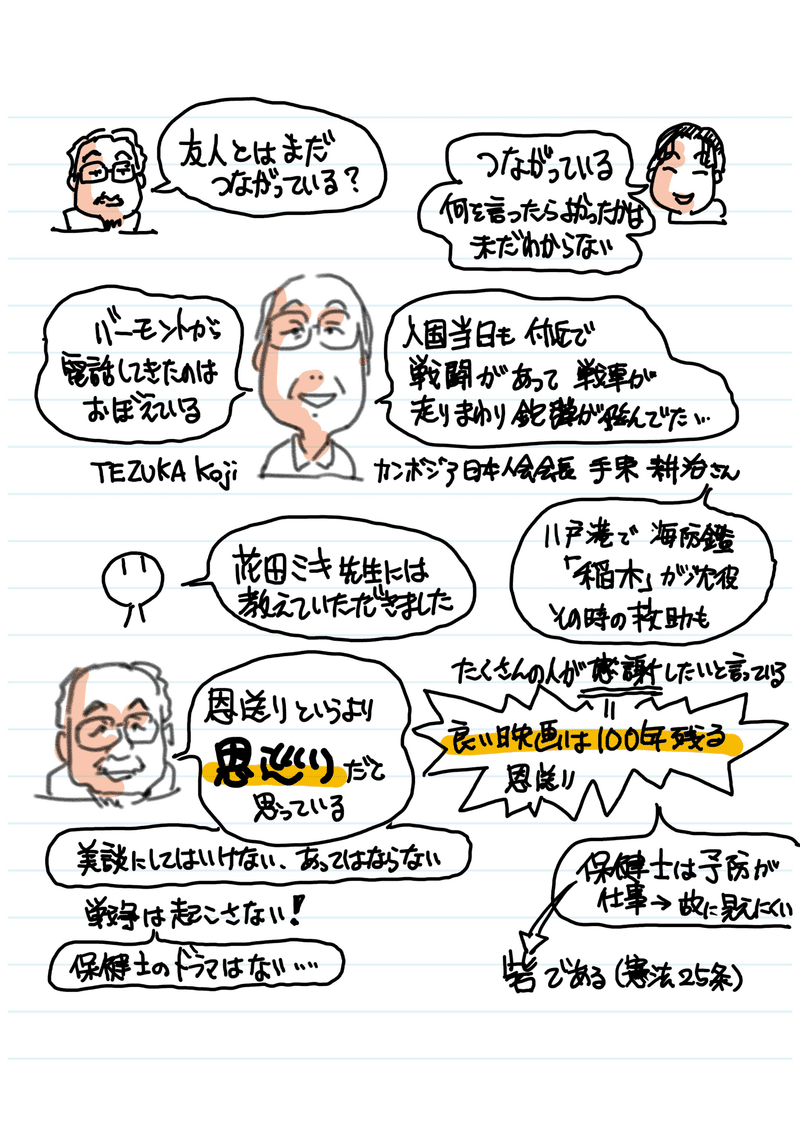 友人とはまだ
つながっている？
つながっている
何を言ったらよかったかは
未だわからない
バーモントから
電話してきたのは
おぼえている
入国当日も 付近で
戦闘があって 戦車が
走りまわり 銃弾が飛んでた…
TEZUKA Koji
カンボジア日本人会会長 手束 耕治さん
八戸港で 海防鑑
「稲木」が沈役
その時の救助も
花田ミキ先生には
教えていただきました
たくさんの人が感謝したいと言っている
恩送りというより
恩巡りだと
思っている
〃
良い映画は100年残る
恩送り
美談にしてはいけない、あってはならない
戦争は起こさない！
保健士のドラマはない…
保健士は予防が
仕事→故に見えにくい
岩である(憲法25条)